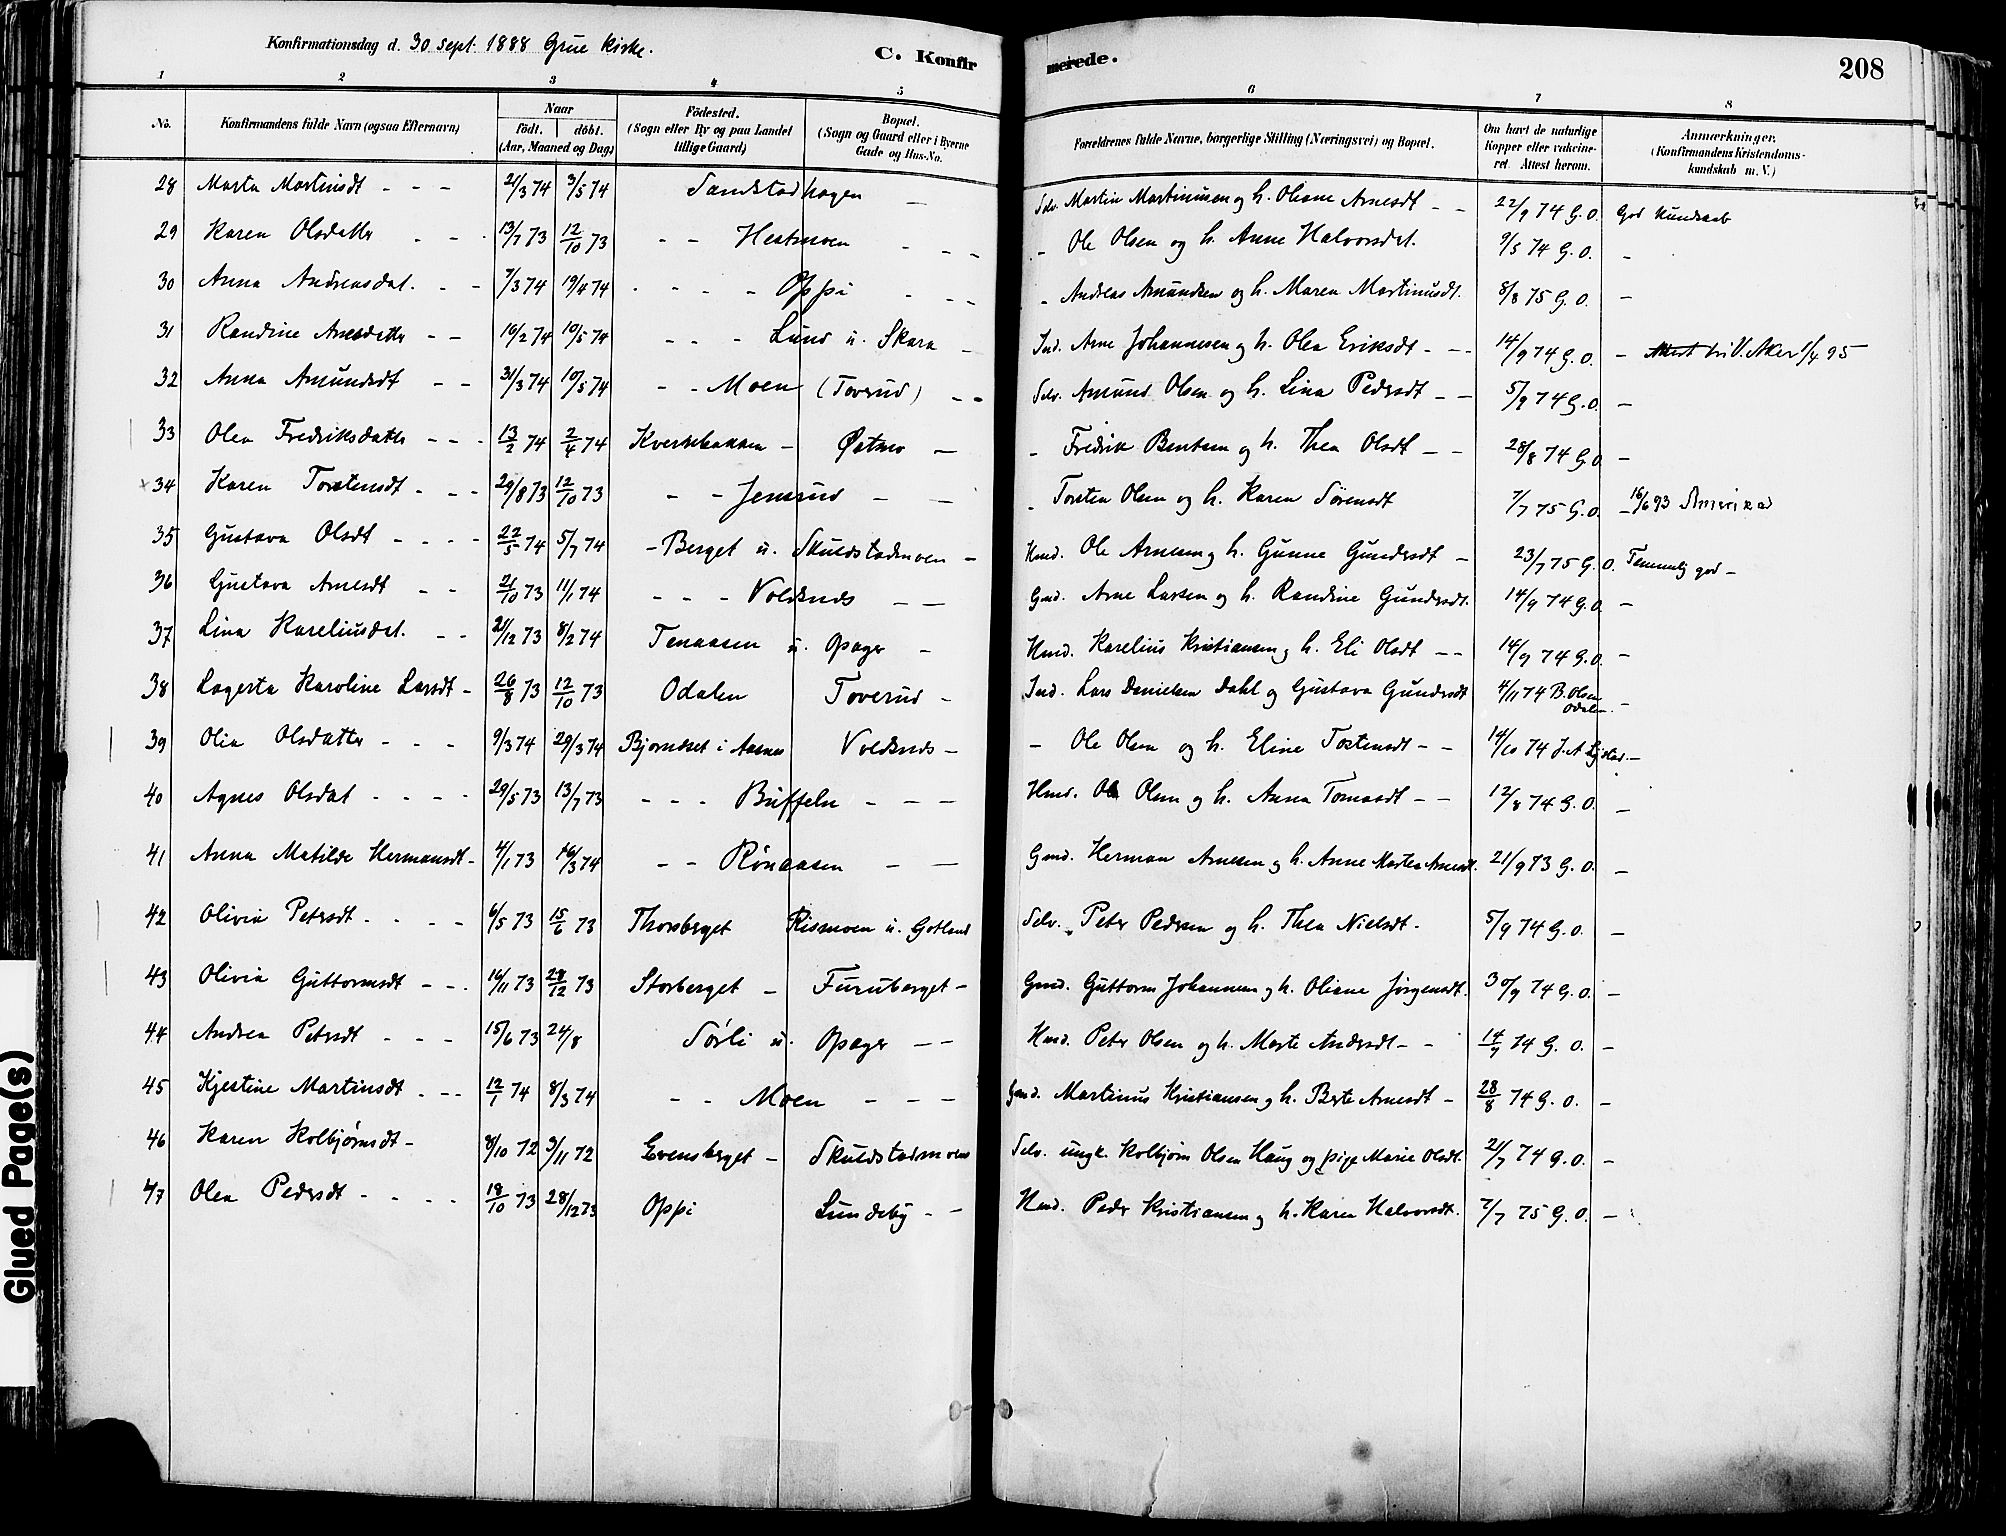 Konfirmationsdag d. 30 sept. 1888 Grue kirke.
C. Konfirmerede.
208
1 2 3 4 5 6 7 8
No. | Konfirmandens fulde Navn (ogsaa Efternavn) | Naar født. døbt. (Aar, Maaned og Dag) | Fødested. (Sogn eller By og paa Landet tillige Gaard) | Bopæl. (Sogn og Gaard eller i Byerne Gade og Hus-No. | Forældrenes fulde Navne, borgerlige Stilling (Næringsvei) og Bopæl. | Om havt de naturlige Kopper eller vakcineret. Attest herom. | Anmærkninger. (Konfirmandens Kristendomskundskab m. V.)
28 Marta Martinsdt - - - 21/3 74 3/5 74 Sandstadhagen - Selv. Martin Martinusen og h. Oleane Arnesdt - - 22/9 74 G.O. God kundskab
29 Karen Olsdatter - - - 13/7 73 12/10 73 - - Hestmoen - - - - Ole Olsen og h. Anne Halvorsdt. 9/5 74 G.O. -
30 Anna Andreasdat. - - 7/3 74 19/4 74 - - - - Oppi - - - - Andreas Amundsen og h. Maren Martinusdt. 8/8 75 G.O. -
31 Randine Arnesdatter - - 16/2 74 10/5 74 - - - Lund u. Skara - Ind. Arne Johannesen og h. Olea Eriksdt - - 14/9 74 G.O. - Attest til V. Aker 1/4 95
32 Anna Amundsdt - - 31/3 74 10/5 74 - - Moen (Toverud) - - Selv. Amund Olsen og h. Lina Pedersdt - - 5/9 74 G.O. -
33 Olea Fredriksdatter - - - 13/2 74 2/4 74 Kvernbakken - Østmo - - Fredrik Bentsen og h. Thea Olsdt - - 28/8 74 G.O. -
34 Karen Torstensdt - - - 29/8 73 12/10 73 - - Jensrud - - - Torsten Olsen og h. Karen Sørensdt 7/7 75 G.O. - 16/6 93 Amerika
35 Gustava Olsdt - - - - 22/5 74 5/7 74 - Berget u. Skuldstadmoen - Hmd. Ole Arnesen og h. Gunne Gundersdt - 23/7 75 G.O. Temmelig god -
36 Gustava Arnesdt - - 21/10 73 11/1 74 - - - Voldsnds - - Gmd. Arne Larsen og h. Randine Gundersdt. 14/9 74 G.O. -
37 Lina Kareliusdat. - - 21/12 73 8/2 74 Tenaasen u. Opager - Hmd. Karelius Kristiansen og h. Eli Olsdt - - 14/9 74 G.O. -
38 Lagerta Karoline Larsdt - 26/8 73 12/10 73 Odalen Toverud - Ind. Lars Danielsen Dahl og Gustava Gundersdt 4/11 74 B. Olsen Odalen. -
39 Olia Olsdatter - - - 9/3 74 29/3 74 Bjørneset i Aasnes Voldsnds - - Ole Olsen og h. Eline Tostensdt - - 14/10 74 J.A. -
40 Agnes Olsdat - - - - 29/5 73 13/7 73 - - - Buffeln - - - Hmd. Ole Olsen og h. Anna Tomasdt - - 12/8 74 G.O. -
41 Anna Matilde Hermansdt - 4/1 73 16/3 74 - - Rønaasen - - Gmd. Herman Arnesen og h. Anne Marten Arnesdt. 21/9 73 G.O. -
42 Olivia Petersdt - - - - 6/5 73 15/6 73 Thorsberget Rismoen u. Gotland Selv. Peter Pedersen og h. Thea Nielsdt. 5/9 74 G.O. -
43 Olivia Guttormsdt - - - 16/11 73 28/12 73 Storberget - Furuberget - Gmd. Guttorm Johannesen og h. Oliane Jørgensdt. 30/9 74 G.O. -
44 Andrea Petersdt - - - 15/6 73 24/8 Sørli u. Opager - - Hmd. Peter Olsen og h. Marte Andersdt - - 14/9 74 G.O. -
45 Kjestine Martinsdt - - - 12/1 74 8/3 74 - - Moen - - - Gmd. Martinus Kristiansen og h. Berte Arnesdt - 28/8 74 G.O. -
46 Karen Kolbjørnsdt - 8/10 72 3/11 72 Evensberget - Skuldstadmoen Selv. ungk. Kolbjørn Olsen Haug og pige Marie Olsdt. 21/7 74 G.O. -
47 Olea Pedersdt - - - - 18/10 73 28/12 73 Oppi Lundeby - - Hmd. Peder Kristiansen og h. Karen Halvorsdt. 7/7 75 G.O. -
Glued Page(s)